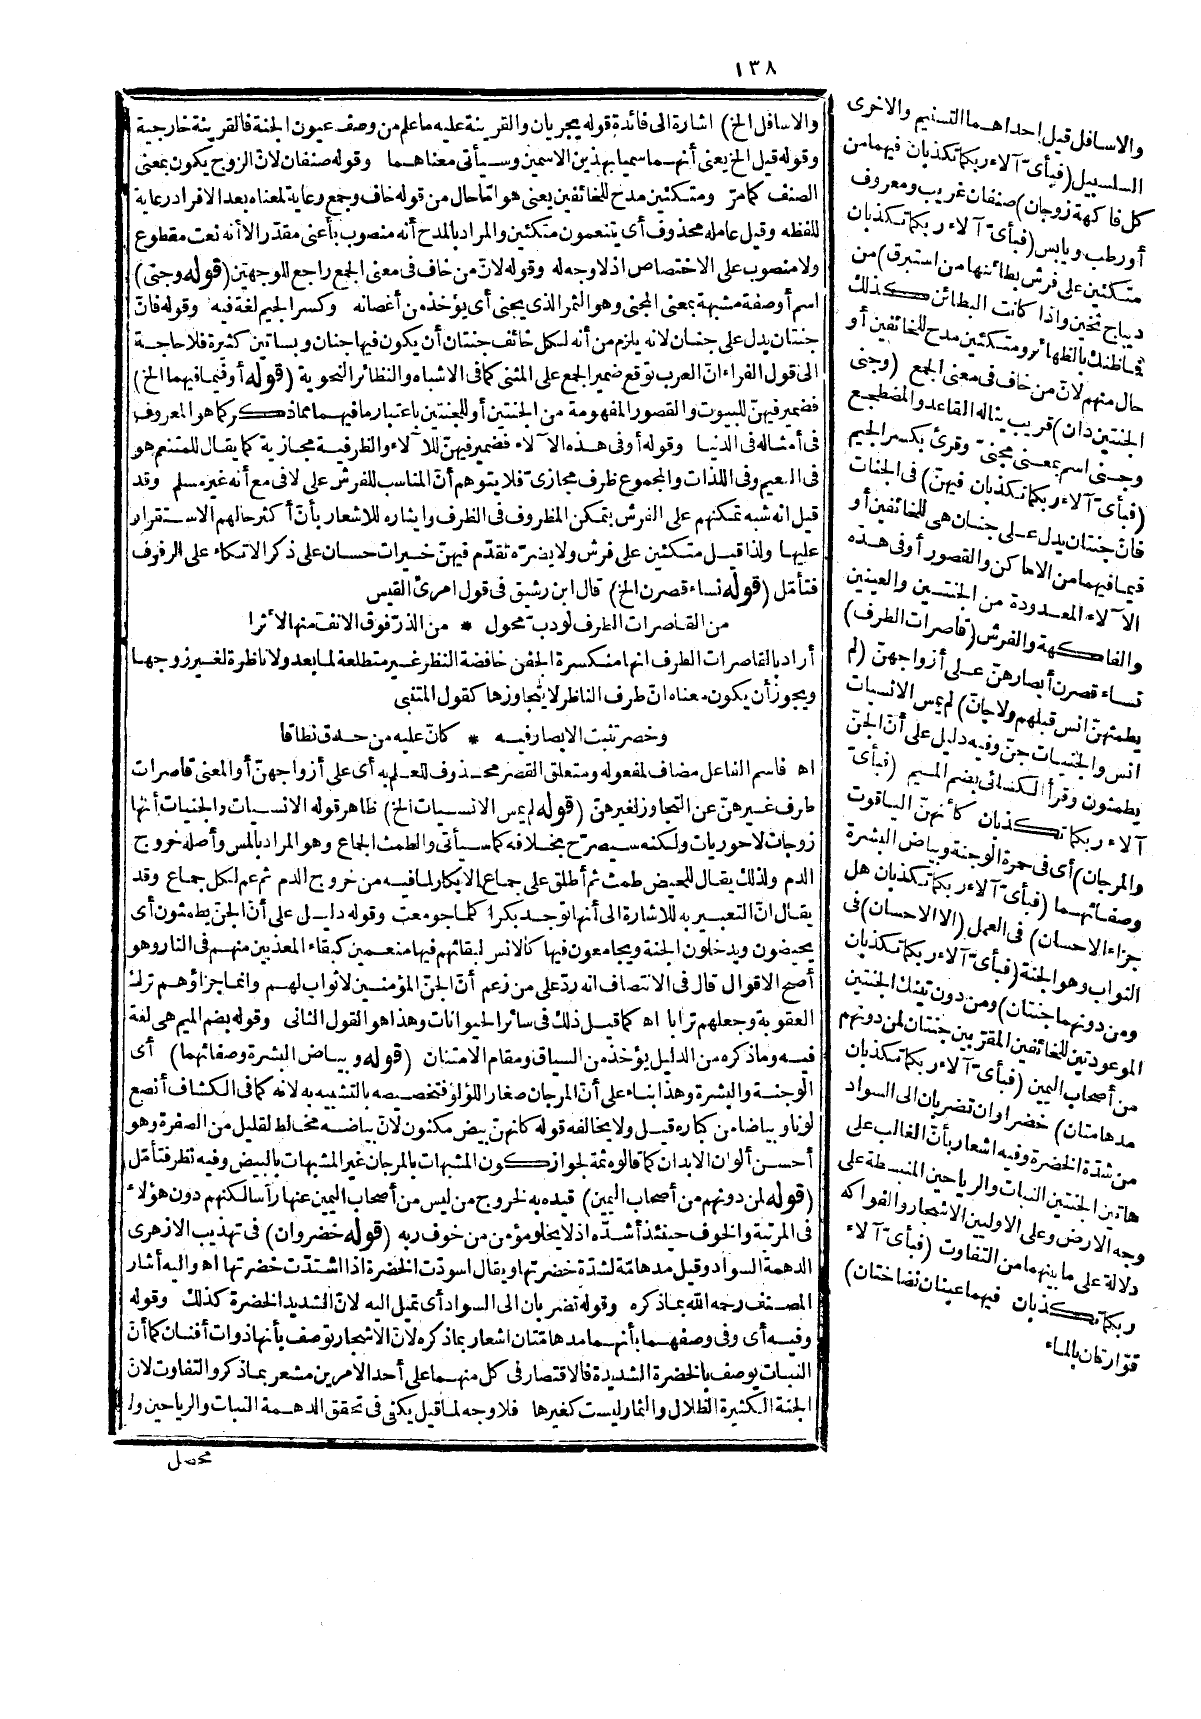 ١٣٨
والاسافل الخ) اشارة الى فائدة قوله يجريان والقرينة عليه ما علم من وصف عيون الجنة فالقرينة خارجية
وقوله قيل الخ يعنى أنهما سميا بهذين الاسمين وسيأتى معناهما وقوله صنفان لانّ الزوج يكون بمعنى
الصنف كما مرّ ومتكئين مدح للخائفين يعنى هو امّا حال من قوله خاف وجمع رعاية لمعناه بعد الافراد رعاية
للفظه وقيل عامله محذوف أى يتنعمون متكئين والمراد بالمدح أنه منصوب بأعنى مقدّر الا أنه نعت مقطوع
ولا منصوب على الاختصاص اذ لا وجه له وقوله لانّ من خاف فى معنى الجمع راجع للوجهين (قوله وجنى)
اسم أوصفة مشبهة بمعنى المجنى وهو الثمر الذى يجنى أى يؤخذ من أغصانه وكسر الجيم لغة فيه وقوله فانّ
جنتان يدل على جنان لانه يلزم من أنه لكل خائف جنتان أن يكون فيها جنان وبساتين كثيرة فلا حاجة
الى قول الفراء انّ العرب توقع ضمير الجمع على المثنى كما فى الاشباه والنظائر النحوية (قوله أو فيما فيهما الخ)
فضمير فيهنّ للبيوت والقصور المفهومة من الجنتين أو للجنتين باعتبار ما فيهما مما ذكر كما هو المعروف
فى أمثاله فى الدنيا وقوله أو فى هذه الآلاء فضمير فيهنّ للآلاء والظرفية مجازية كما يقال للمتنعم هو
فى النعيم وفى اللذات والمجموع ظرف مجازىّ فلا يتوهم أنّ المناسب للفرش على لا فى مع أنه غير مسلم وقد
قيل انه شبه تمكنهم على الفرش بتمكن المظروف فى الظرف وايثاره للاشعار بأنّ أكثر حالهم الاستقرار
عليها ولذا قيل متكئين على فرش ولا يضرّه تقدّم فيهنّ خيرات حسان على ذكر الاتكاء على الرفرف
فتأمّل (قوله نساء قصرن الخ) قال ابن رشيق فى قول امرئ القيس
من القاصرات الطرف لو دبّ محول * من الذرّ فوق الاتف منها لأثرا
أراد بالقاصرات الطرف انها منكسرة الجفن خافضة النظر غير متطلعة لما بعد ولا ناظرة لغير زوجها
ويجوز أن يكون معناه انّ طرف الناظر لا يتجاوزها كقول المتنبى
وخصر تثبت الابصار فيه * كأنّ عليه من حدق نطاقا
اه فاسم الفاعل مضاف لمفعوله ومتعلق القصر محذوف للعلم به أى على أزواجهنّ أو المعنى قاصرات
طرف غيرهنّ عن التجاوز لغيرهنّ (قوله لم يمس الانسيات الخ) ظاهر قوله الانسيات والجنيات أنها
زوجات لا حوريات ولكنه سيصرّح بخلافه كما سيأتى والطمث الجماع وهو المراد بالمس وأصله خروج
الدم ولذلك يقال للحيض طمث ثم أطلق على جماع الابكار لما فيه من خروج الدم ثم عم لكل جماع وقد
يقال انّ التعبير به للاشارة الى أنها توجد بكرا كلما جومعت وقوله دليل على أنّ الجنّ يطمثون أى
يحيضون ويدخلون الجنة ويجامعون فيها كالانس لبقائهم فيها منعمين كبقاء المعذبين منهم فى النار وهو
أصح الاقوال قال فى الانتصاف انه ردّ على من زعم أنّ الجنّ المؤمنين لا ثواب لهم وانما جزاؤهم ترك
العقوبة وجعلهم ترابا اه كما قيل ذلك فى سائر الحيوانات وهذا هو القول الثانى وقوله بضم الميم هى لغة
فيه وما ذكره من الدليل يؤخذ من السياق ومقام الامتنان (قوله وبياض البشرة وصفائهما) أى
الوجنة والبشرة وهذا بناء على أنّ المرجان صغار اللؤلؤ فتخصيصه بالتشبيه به لانه كما فى الكشاف أنصع
لونا وبياضا من كباره قيل ولا يخالفه قوله كانهنّ بيض مكنون لانّ بياضه مخالط لقليل من الصفرة وهو
أحسن ألوان الابدان كما قالوه ثمة لجواز كون المشبهات بالمرجان غير المشبهات بالبيض وفيه نظر فتأمّل
(قوله لمن دونهم من أصحاب اليمين) قيده به لخروج من ليس من أصحاب اليمين عنها رأسا لكنهم دون هؤلاء
فى المرتبة والخوف حينئذ أشدّه اذ لا يخلو مؤمن من خوف ربه (قوله خضروان) فى تهذيب الازهرى
الدهمة السواد وقيل مدهامّة لشدّة خضرتها ويقال اسودّت الخضرة اذا اشتدّت خضرتها اه واليه أشار
المصنف رحمه الله بما ذكره وقوله تضربان الى السواد أى تميل اليه لانّ الشديد الخضرة كذلك وقوله
وفيه أى وفى وصفهما بأنهما مدهامّتان اشعار بما ذكره لانّ الاشجار توصف بأنها ذوات أفنان كما أنّ
النبات يوصف بالخضرة الشديدة فالاقتصار فى كل منهما على أحد الامرين مشعر بما ذكر والتفاوت لانّ
الجنة الكثيرة الظلال والثمار ليست كغيرها فلا وجه لما قيل يكنى فى تحقق الدهمة النبات والرياحين ولا
محصل
والاسافل قيل احداهما التسنيم والاخرى
السلسبيل (فبأىّ آلاء ربكما تكذبان فيهما من
كل فاكهة زوجان) صنفان غريب ومعروف
أو رطب ويابس (فبأىّ آلاء ربكما تكذبان
متكئين على فرش بطائنها من استبرق) من
ديباج ثخين واذا كانت البطائن كذلك
فما ظنك بالظهائر ومتكئين مدح للخائفين أو
حال منهم لانّ من خاف فى معنى الجمع (وجنى
الجنتين دان) قريب يناله القاعد والمضطجع
وجنى اسم بمعنى مجنىّ وقرئ بكسر الجيم
(فبأىّ آلاء ربكما تكذبان فيهنّ) فى الجنات
فانّ جنتان يدل على جنان هى للخائفين أو
فيما فيهما من الاماكن والقصور أو فى هذه
الآلاء المعدودة من الجنتين والعينين
والفاكهة والفرش (قاصرات الطرف)
نساء قصرن أبصارهنّ على أزواجهنّ (لم
يطمثهنّ انس قبلهم ولا جانّ) لم يمس الانسيات
انس والجنيات جنّ وفيه دليل على أنّ الجنّ
يطمثون وقرأ الكسائى بضم الميم (فبأىّ
آلاء ربكما تكذبان كأنهنّ الياقوت
والمرجان) أى فى حمرة الوجنة وبياض البشرة
وصفائهما (فبأىّ آلاء ربكما تكذبان هل
جزاء الاحسان) فى العمل (الا الاحسان) فى
الثواب وهو الجنة (فبأىّ آلاء ربكما تكذبان
ومن دونهما جنتان) ومن دون تينك الجنتين
الموعودتين للخائفين المقرّبين جنتان لمن دونهم
من أصحاب اليمين (فبأىّ آلاء ربكما تكذبان
مدهامتان) خضراوان تضربان الى السواد
من شدّة الخضرة وفيه اشعار بأنّ الغالب على
هاتين الجنتين النبات والرياحين المنبسطة على
وجه الارض وعلى الاوليين الاشجار والفواكه
دلالة على ما بينهما من التفاوت (فبأىّ آلاء
ربكما تكذبان فيهما عينان نضاختان)
فوّارتان بالماء